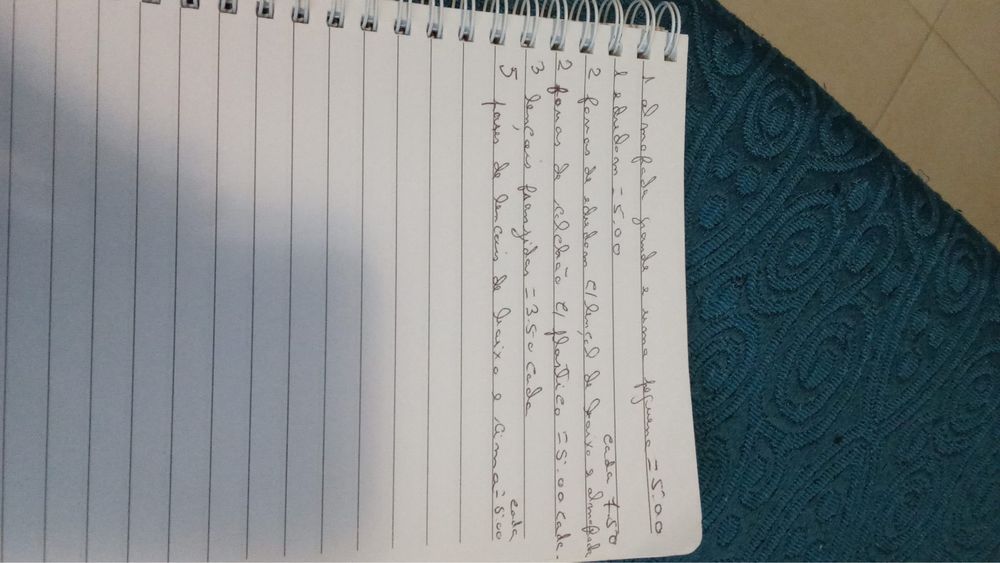 1 almofada grande e uma pequena = 5.00
1 edredom = 5.00
2 forras de edredom c/ lençol de baixo e almofada cada 7.50
2 forras de colchão c/ plastico = 5.00 cada.
3 lençois franzidos = 3.50 cada
5 pares de lençais de baixo e cima = 5.00 cada